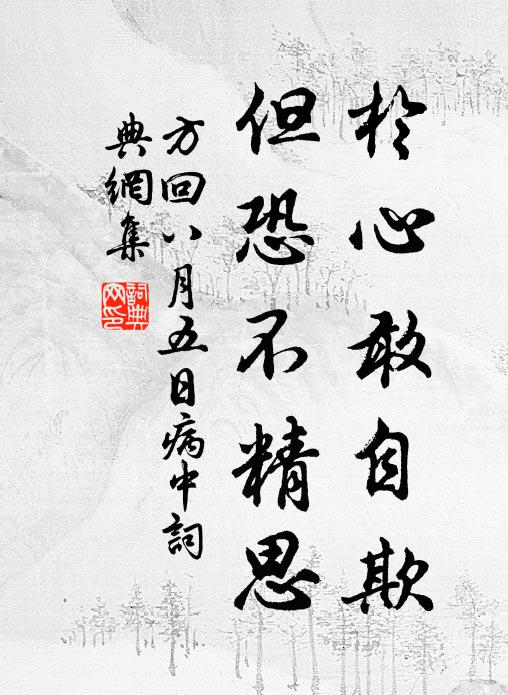 於心敢自欺
但恐不精思
方回八月五日病中詞
典網集
詞典網印